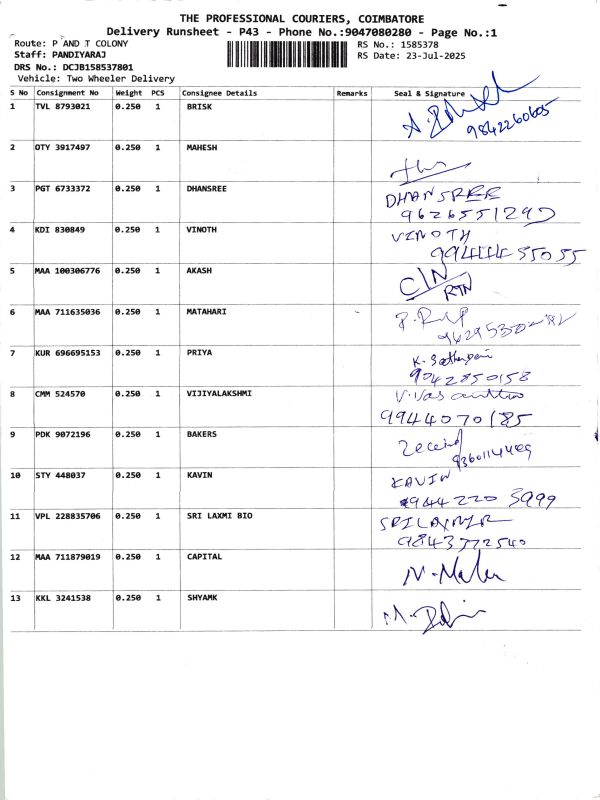 THE PROFESSIONAL COURIERS, COIMBATORE
Delivery Runsheet - P43 - Phone No.:9047080280 - Page No.:1
Route: P AND T COLONY
RS No.: 1585378
Staff: PANDIYARAJ
RS Date: 23-Jul-2025
DRS No.: DCJB158537801
Vehicle: Two Wheeler Delivery
S No Consignment No Weight PCS Consignee Details Remarks Seal & Signature
1 TVL 8793021 0.250 1 BRISK
9842260605
2 OTY 3917497 0.250 1 MAHESH
3 PGT 6733372 0.250 1 DHANSREE DHANSREE
9626551290
4 KDI 830849 0.250 1 VINOTH VINOTH
9944455055
5 MAA 100306776 0.250 1 AKASH C/N
RTN
6 MAA 711635036 0.250 1 MATAHARI
7 KUR 696695153 0.250 1 PRIYA
9042850158
8 CMM 524570 0.250 1 VIJIYALAKSHMI
9944070185
9 PDK 9072196 0.250 1 BAKERS
10 STY 448037 0.250 1 KAVIN KAVIN
9944 220 5999
11 VPL 228835706 0.250 1 SRI LAXMI BIO
9843722540
12 MAA 711879019 0.250 1 CAPITAL
13 KKL 3241538 0.250 1 SHYAMK